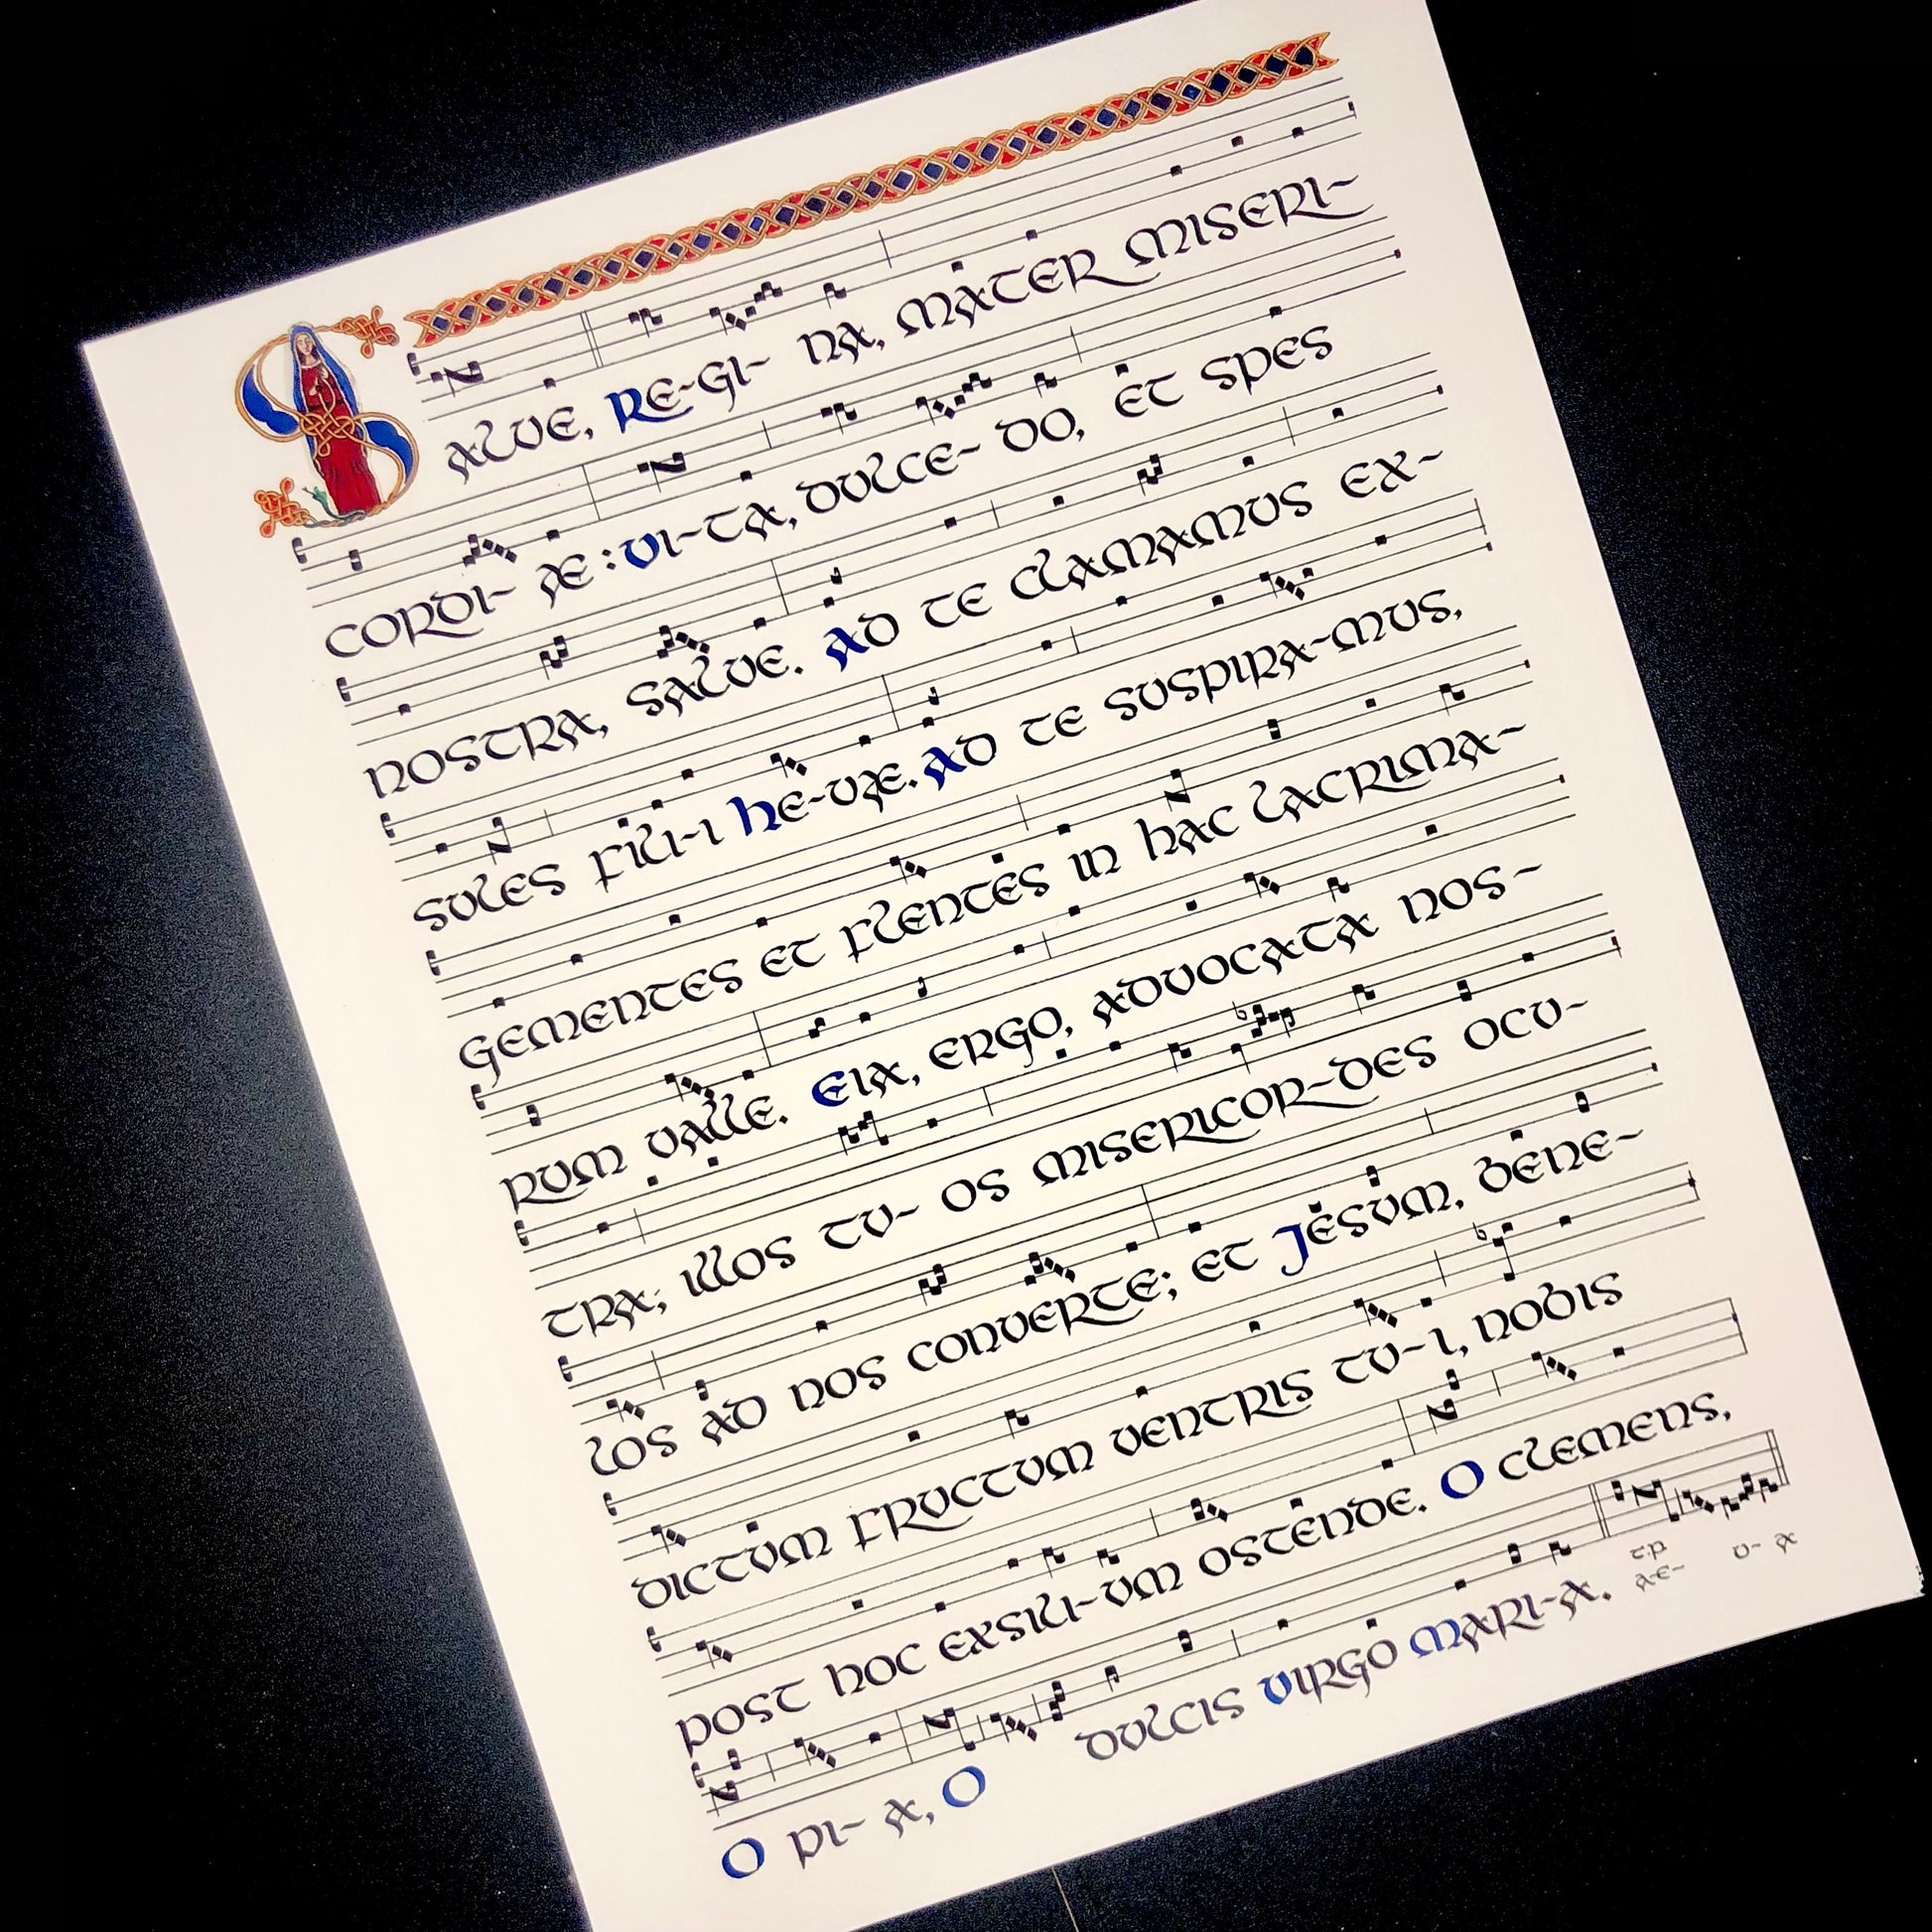 SALVE, RE-GI- NA, MATER MISERI-
CORDI- Æ : VI-TA, DULCE- DO, ET SPES
NOSTRA, SALVE. AD TE CLAMAMUS EX-
SULES FILI-I HE-VÆ. AD TE SUSPIRA-MUS,
GEMENTES ET FLENTES IN HAC LACRIMA-
RUM VALLE. EIA, ERGO, ADVOCATA NOS-
TRA; ILLOS TU- OS MISERICOR-DES OCU-
LOS AD NOS CONVERTE; ET JESUM, BENE-
DICTUM FRUCTUM VENTRIS TU- I, NOBIS
POST HOC EXSILI-UM OSTENDE. O CLEMENS,
O PI- A, O DULCIS VIRGO MARI-A.
T.P.
A-E- U- A